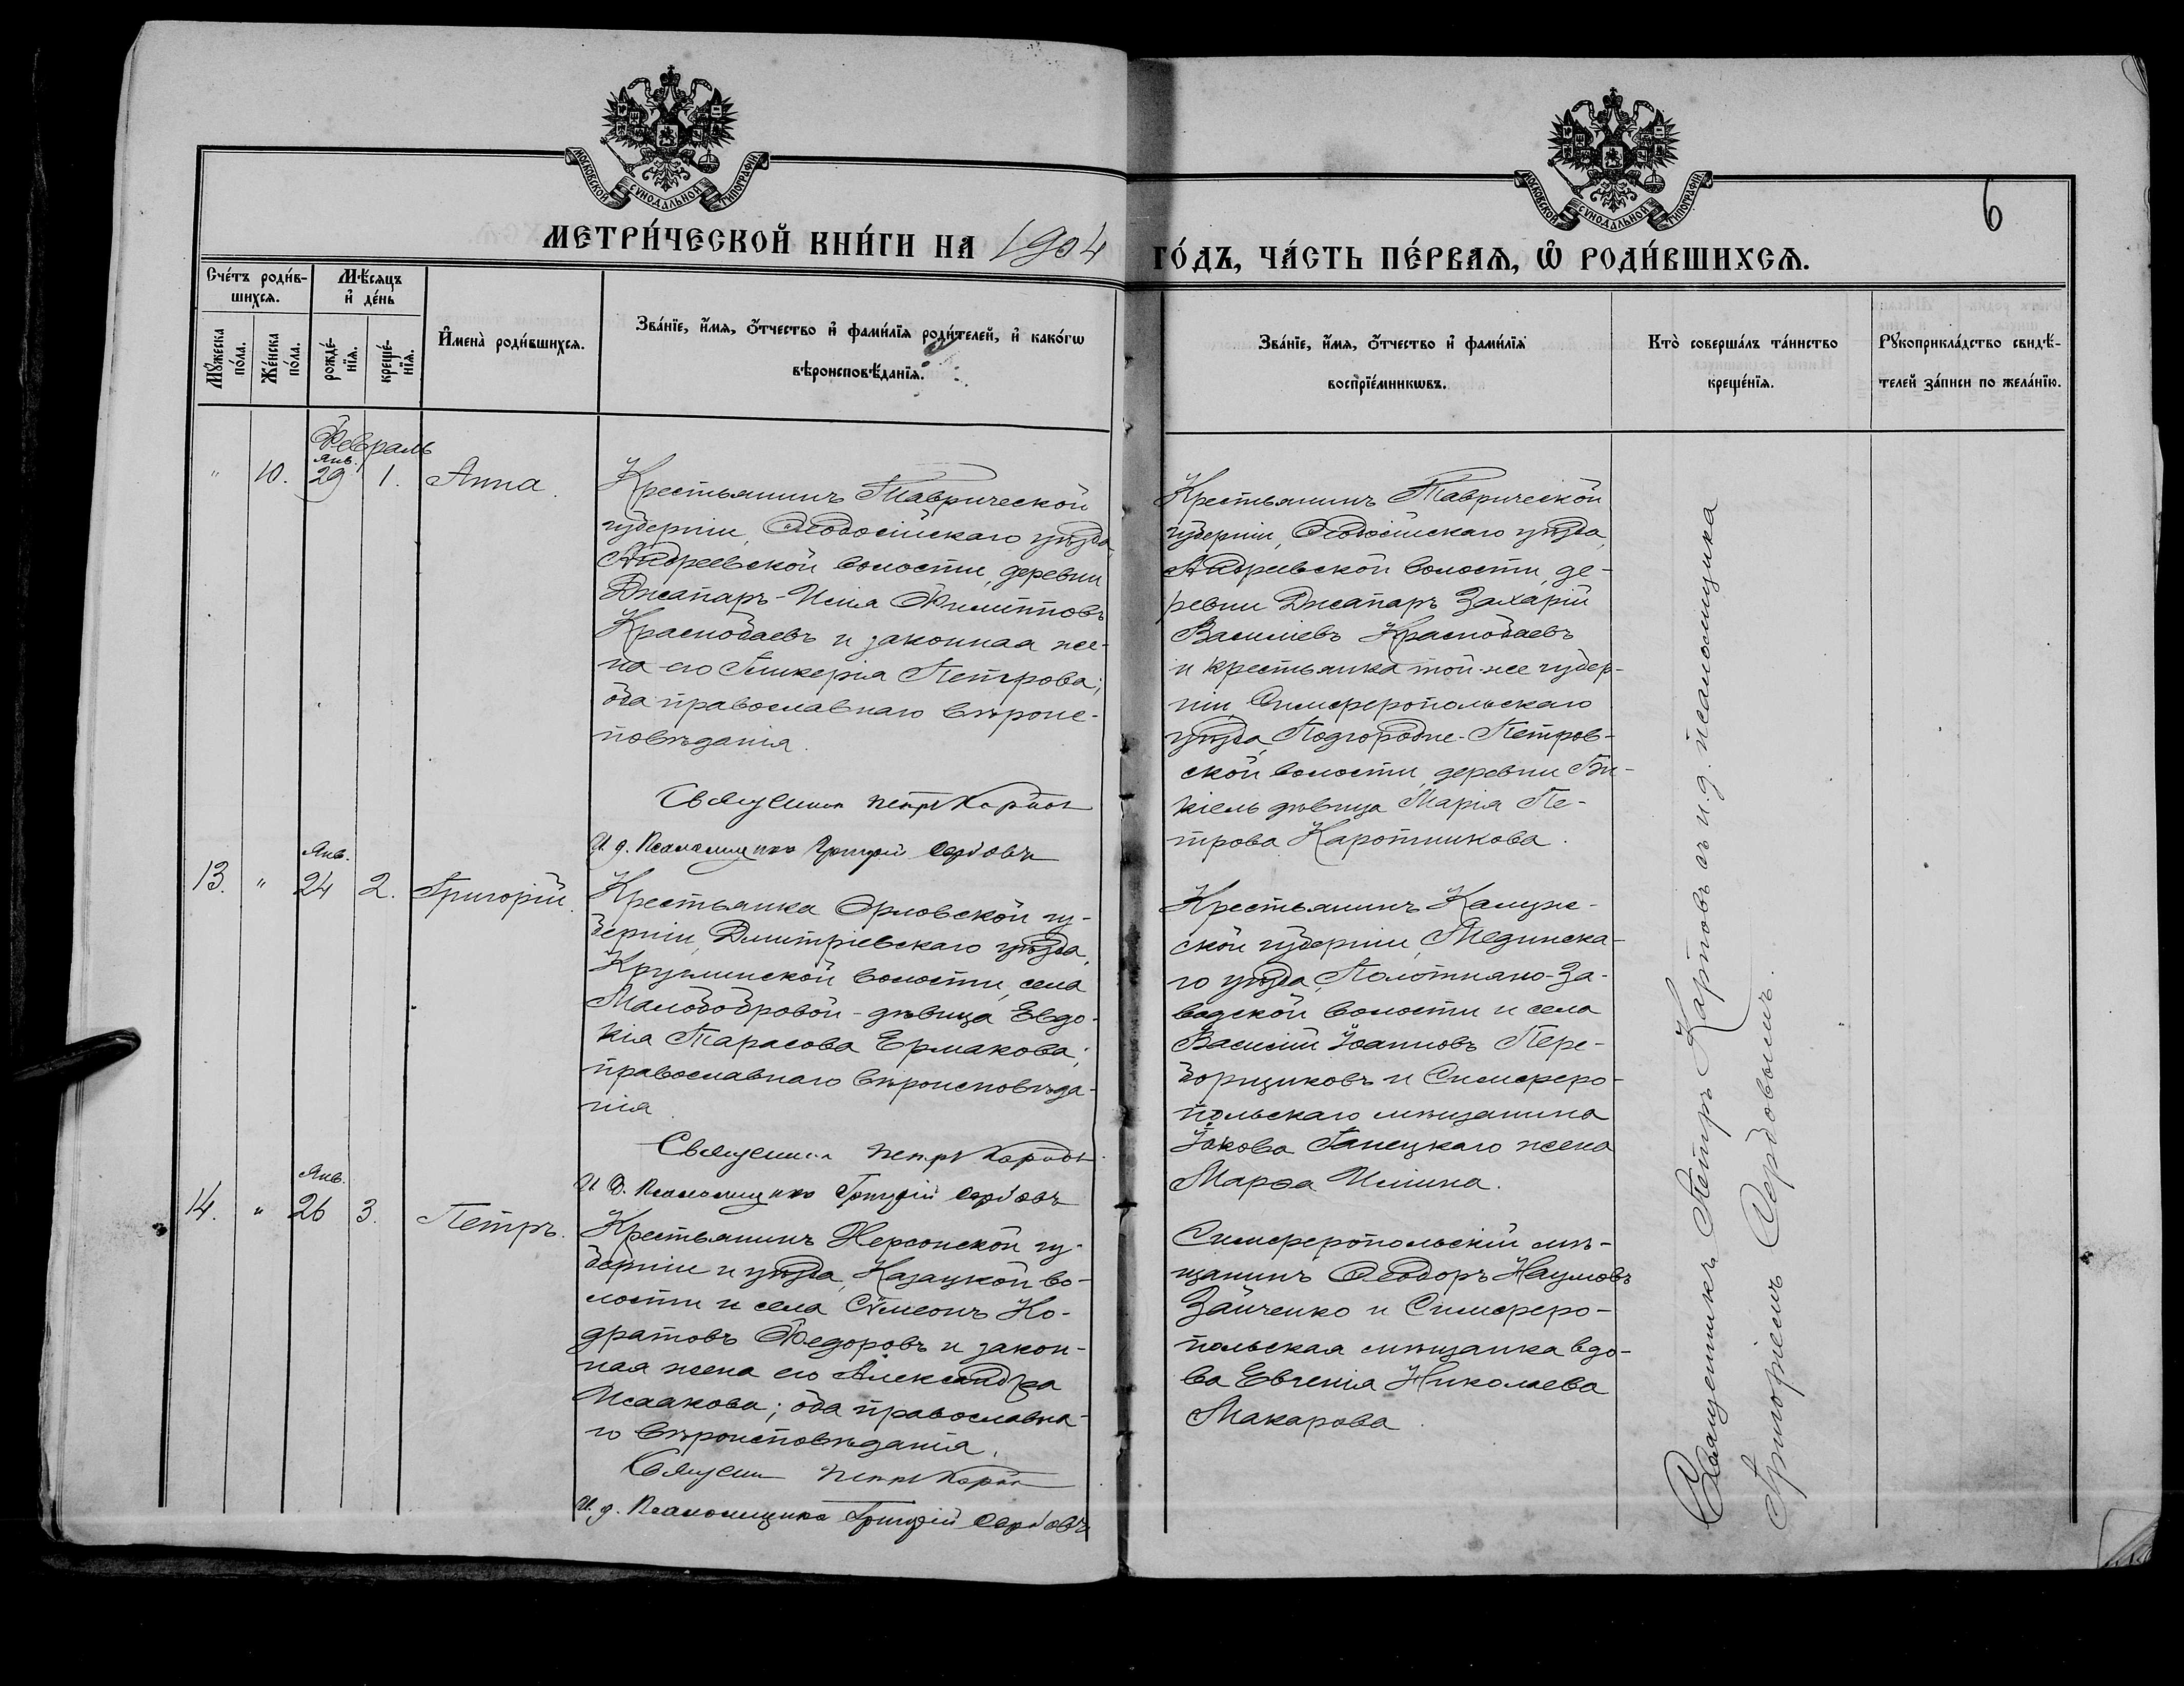 МОСКОВСКОЙ СѴНОДАЛЬНОЙ ТИПОГРАФІИ
МОСКОВСКОЙ СѴНОДАЛЬНОЙ ТИПОГРАФІИ
6
МЕТРИ́ЧЕСКОЙ КНИ́ГИ НА 1904 ГО́ДЪ, ЧА́СТЬ ПЕ́РВАѦ, Ѡ҆ РОДИ́ВШИХСѦ.
Сче́тъ роди́в-
шихсѧ.
Мꙋ́жеска
по́ла.
Же́нска
по́ла.
Мѣ́сѧцъ
и҆ де́нь
рожде́-
нїѧ.
креще́-
нїѧ.
И҆мена̀ роди́вшихсѧ.
Зва́нїе, и҆́мѧ, ѻ҆́тчество и҆ фами́лїѧ роди́телей, и҆ како́гѡ
вѣроисповѣ́данїѧ.
Зва́нїе, и҆́мѧ, ѻ҆́тчество и҆ фами́лїѧ
воспрїе́мникѡвъ.
Кто̀ соверша́лъ та́инство
креще́нїѧ.
Рꙋкоприкла́дство свидѣ́-
телей за́писи по жела́нїю.
Февраль
Янв.
" 10. 29 1. Анна.
Крестьянинъ Таврической
губерніи, Ѳеодосійскаго уѣзда,
Андреевской волости, деревни
Джапаръ - Илія Филипповъ
Краснобаевъ и законная же-
на его Гликерія Петрова;
оба православнаго вѣроис-
повѣданія.
Священникъ Петръ Карповъ
И. д. Псаломщика Григорій Сербовъ
Крестьянинъ Таврической
губерніи, Ѳеодосійскаго уѣзда,
Андреевской волости, де-
ревни Джапаръ Захарій
Василіевъ Краснобаевъ
и крестьянка той-же губер-
ніи, Симферопольскаго
уѣзда, Подгородне-Петров-
ской волости, деревни Би-
кіель дѣвица Марія Пе-
трова Каротникова.
Янв.
13. " 24 2. Григорій.
Крестьянка Орловской гу-
берніи, Дмитріевскаго уѣзда,
Круглинской волости, села
Малободровой - дѣвица Евдо-
кія Тарасова Ермакова;
православнаго вѣроисповѣда-
нія.
Священникъ Петръ Карповъ
И. д. Псаломщика Григорій Сербовъ
Крестьянинъ Калуж-
ской губерніи, Медынска-
го уѣзда, Полотняно-За-
водской волости и села
Василій Іоанновъ Пере-
борщиковъ и Симферо-
польскаго мѣщанина
Іакова Ганецкаго жена
Марѳа Ильина.
Янв.
14. " 26 3. Петръ.
Крестьянинъ Херсонской гу-
берніи и уѣзда, Казацкой во-
лости и села Сѵмеонъ Ко-
дратовъ Федоровъ и закон-
ная жена его Александра
Исаакова; оба православна-
го вѣроисповѣданія.
Священникъ Петръ Карповъ
И. д. Псаломщика Григорій Сербовъ
Симферопольскій мѣ-
щанинъ Ѳеодоръ Наумовъ
Зайченко и Симферо-
польская мѣщанка вдо-
ва Евгенія Николаева
Макарова.
Священникъ Петръ Карповъ съ и. д. псаломщика
Григоріемъ Сербовымъ.